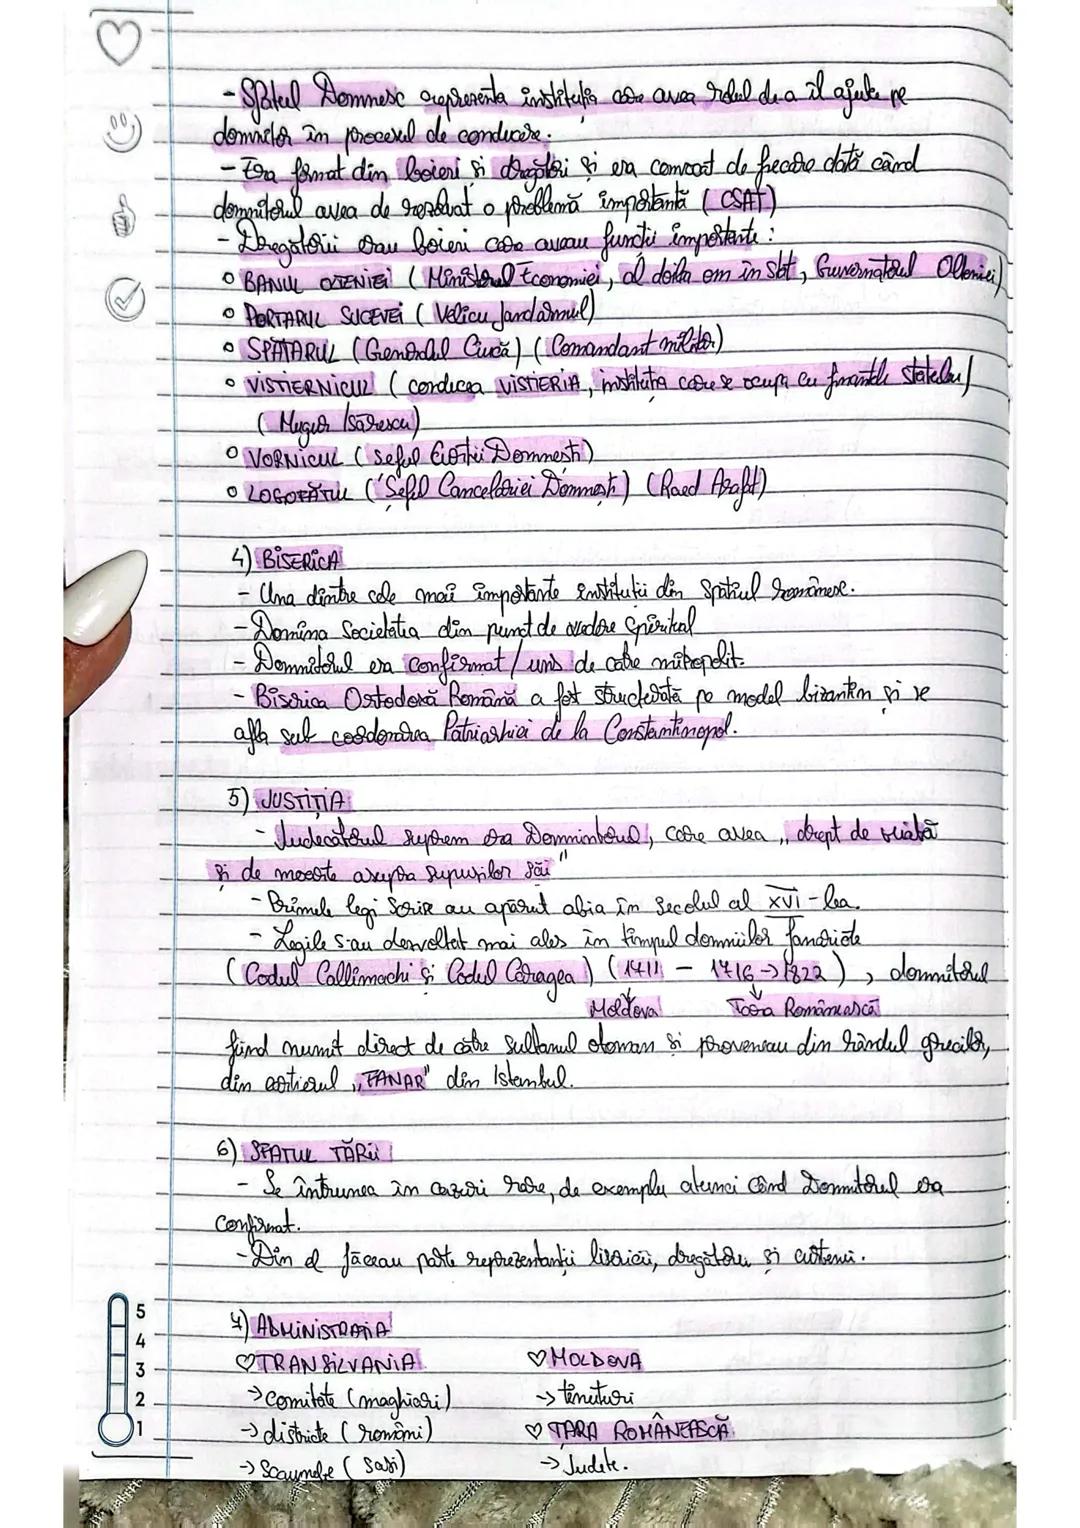 - Sfatul Domnesc reprezenta instituția care avea rolul de a îl ajuta pe
domnitor în procesul de conducere.
- Era format din boieri și dregători și era convocat de fiecare dată când
domnitorul avea de rezolvat o problemă importantă (CSAT)
- Dregătorii erau boieri care aveau funcții importante:
o BANUL OLTENIEI (Ministerul Economiei, al doilea om în stat, Guvernatorul Olteniei)
o PORTARUL SUCEVEI (Velicu Jandarmul)
o SPĂTARUL (Generalul Ciucă) (Comandant militar)
o VISTIERNICUL (conducea VISTIERIA, instituția care se ocupa cu finanțele statului)
(Mugur Isărescu)
o VORNICUL (șeful Curții Domnești)
o LOGOFĂTUL (Șeful Cancelariei Domnești) (Raed Arafat)
4) BISERICA
- Una dintre cele mai importante instituții din spațiul românesc.
- Domina Societatea din punct de vedere spiritual
- Domnitorul era confirmat / uns de către mitropolit.
- Biserica Ortodoxă Română a fost structurată pe model bizantin și se
afla sub coordonarea Patriarhiei de la Constantinopol.
5) JUSTIȚIA
- Judecătorul suprem era Domnitorul, care avea „drept de viață
și de moarte asupra supușilor săi"
- Primele legi scrise au apărut abia în secolul al XVI-lea.
- Legile s-au dezvoltat mai ales în timpul domniilor fanariote
(Codul Callimachi și Codul Caragea) (1711 - 1716 → 1822), domnitorul
Moldova Țara Românească
fiind numit direct de către Sultanul otoman și proveneau din rândul grecilor,
din cartierul „FANAR" din Istanbul.
6) SFATUL ȚĂRII
- Se întrunea în cazuri rare, de exemplu atunci când Domnitorul era
confirmat.
- Din el făceau parte reprezentanții bisericii, dregători și curteni.
7) ADMINISTRAȚIA
♡ TRANSILVANIA ♡ MOLDOVA
→ comitate (maghiari) → ținuturi
→ districte (români) ♡ ȚARA ROMÂNEASCĂ
→ Scaunele (sași) → Județe.
5
4
3
2
1